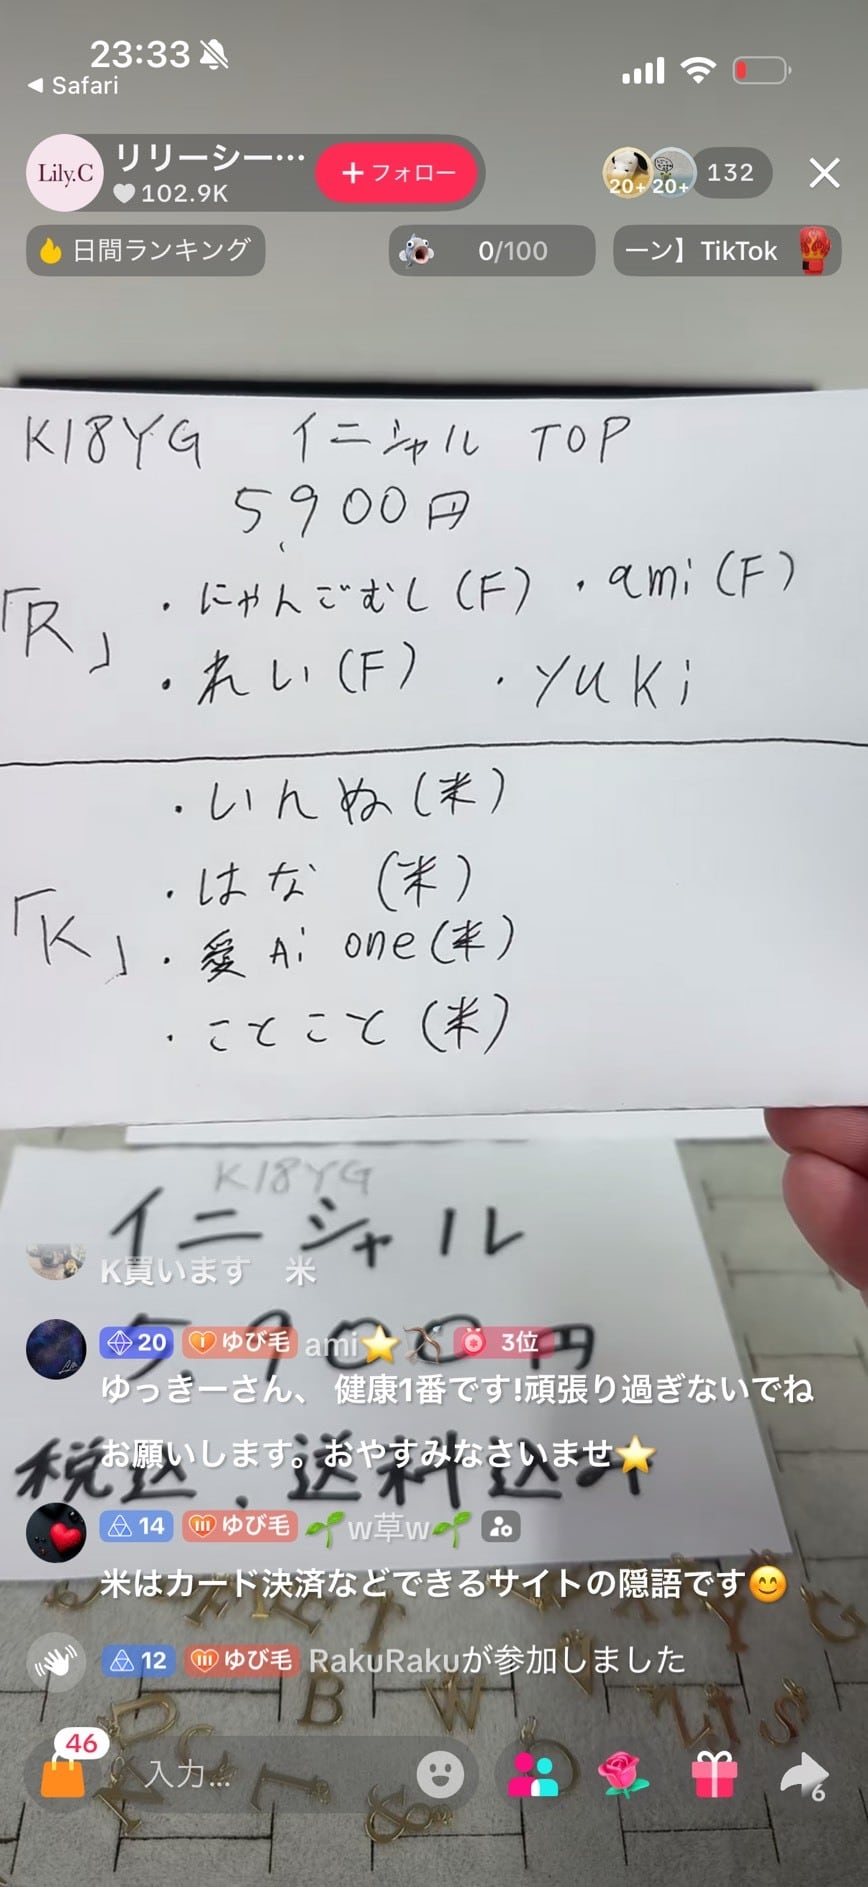 23:33
Safari
Lily.C
リリーシー…
102.9K
+ フォロー
20+ 20+ 132
日間ランキング
0/100
ーン】TikTok
K18YG イニシャル TOP
5,900円
「R」
・にゃんごむし(F) ・ami(F)
・れい(F) ・YUKi
「K」
・いんぬ(米)
・はな (米)
・愛Ai one(米)
・ことこと(米)
K18YG
イニシャル
5,900円
税込.送料込み
K買います 米
20 I ゆび毛 ami⭐🏹 3位
ゆっきーさん、 健康1番です!頑張り過ぎないでね
お願いします。おやすみなさいませ⭐
14 III ゆび毛 🌱w草w🌱
米はカード決済などできるサイトの隠語です😊
12 III ゆび毛 RakuRakuが参加しました
B
W
S
G
Y
&
46
入力...
6